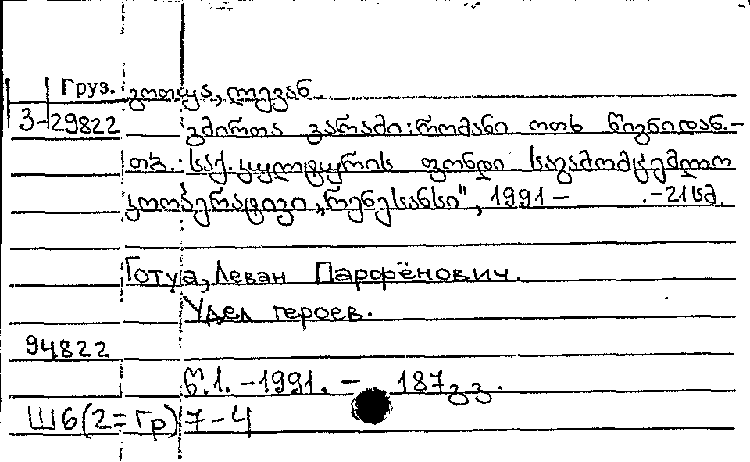 Груз. გოთუა, ლევან.
3-29822 გმირთა ვარამი: რომანი ოთხ წიგნიდან.-
თბ.: საქ. კულტურის ფონდი საგამომცემლო
კოოპერატივი „რენესანსი", 1991 - .-21სმ.
Готуа, Леван Парфёнович.
Удел героев.
94822
წ.1. -1991. - 187გვ.
Ш6(2=Гр)7-4